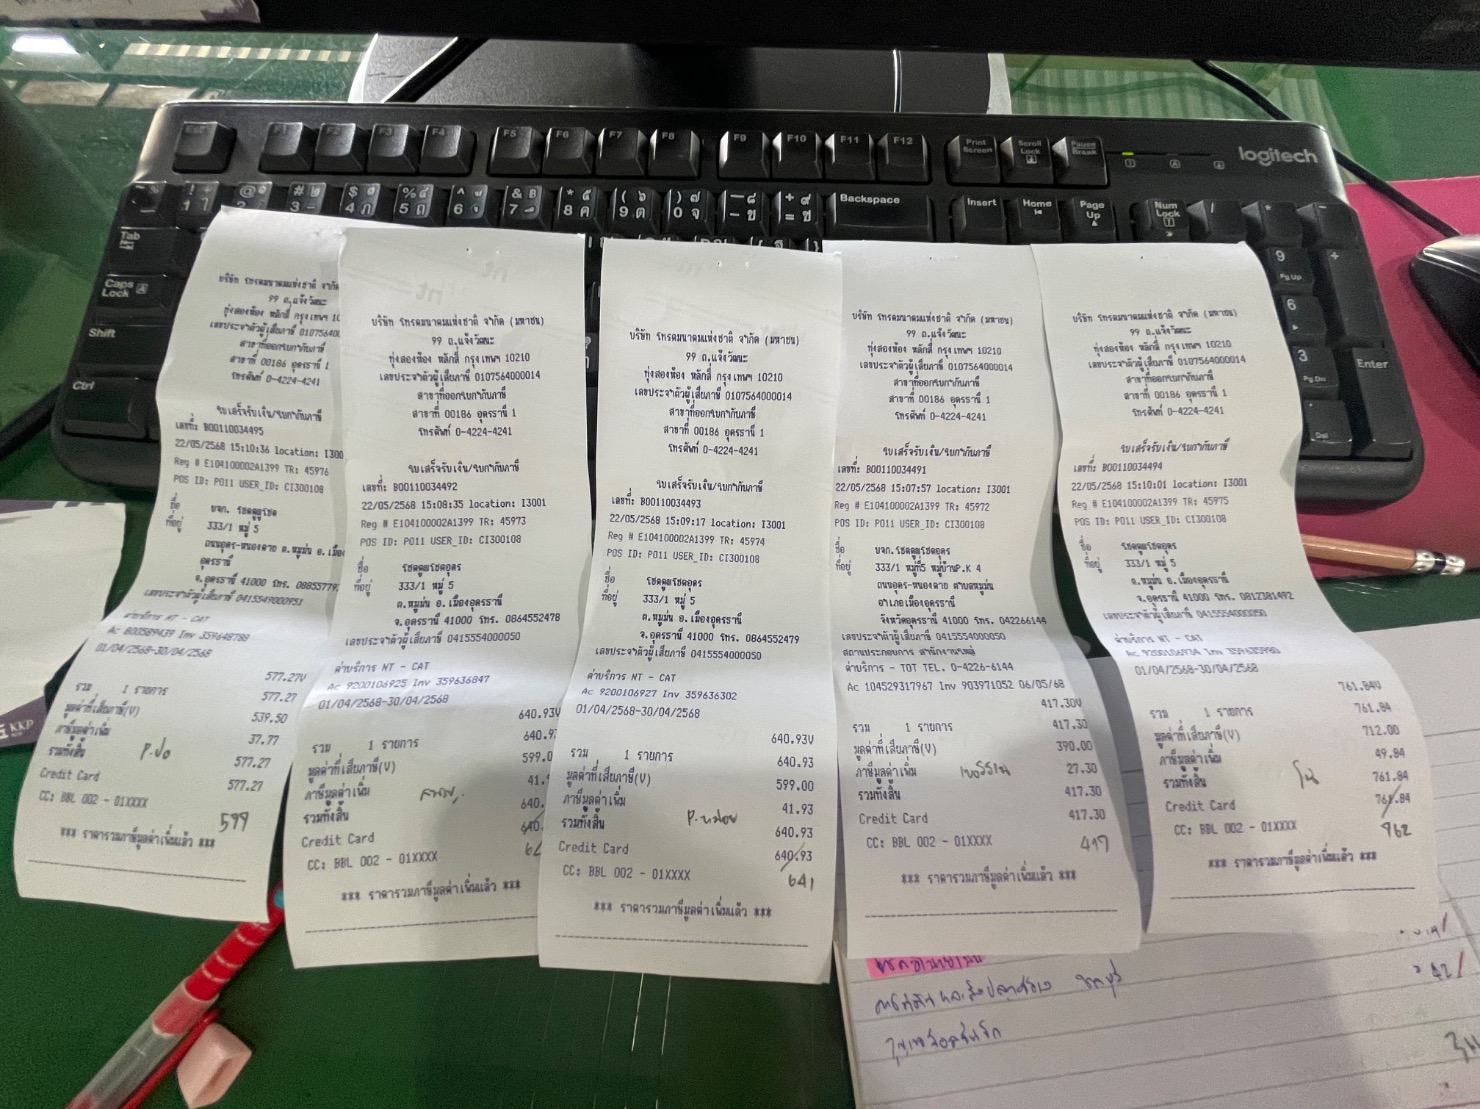 บริษัท โทรคมนาคมแห่งชาติ จำกัด
99 ถ.แจ้งวัฒนะ
ทุ่งสองห้อง หลักสี่ กรุงเทพฯ 10210
เลขประจำตัวผู้เสียภาษี 01075640
สาขาที่ออกใบกำกับภาษี
สาขาที่ 00186 อุดรธานี 1
โทรศัพท์ 0-4224-4241
ใบเสร็จรับเงิน/ใบกำกับภาษี
เลขที่: B00110034495
22/05/2568 15:10:36 location: I300
Reg # E104100002A1399 TR: 45976
POS ID: P011 USER_ID: CI300108
ชื่อ บจก. โชคดูผูโชค
ที่อยู่ 333/1 หมู่ 5
ถนนอุดร-หนองคาย ต.หมูม่น อ.เมือง
อุดรธานี
จ.อุดรธานี 41000 โทร. 08855779
เลขประจำตัวผู้เสียภาษี 0415549000951
ค่าบริการ NT - CAT
Ac 800589439 Inv 359648788
01/04/2568-30/04/2568
577.27V
รวม 1 รายการ 577.27
มูลค่าที่เสียภาษี(V) 539.50
ภาษีมูลค่าเพิ่ม 37.77
รวมทั้งสิ้น 577.27
Credit Card 577.27
CC: BBL 002 - 01XXXX
599
*** ราคารวมภาษีมูลค่าเพิ่มแล้ว ***
บริษัท โทรคมนาคมแห่งชาติ จำกัด (มหาชน)
99 ถ.แจ้งวัฒนะ
ทุ่งสองห้อง หลักสี่ กรุงเทพฯ 10210
เลขประจำตัวผู้เสียภาษี 0107564000014
สาขาที่ออกใบกำกับภาษี
สาขาที่ 00186 อุดรธานี 1
โทรศัพท์ 0-4224-4241
ใบเสร็จรับเงิน/ใบกำกับภาษี
เลขที่: B00110034492
22/05/2568 15:08:35 location: I3001
Reg # E104100002A1399 TR: 45973
POS ID: P011 USER_ID: CI300108
ชื่อ โชคดูผูโชคอุดร
ที่อยู่ 333/1 หมู่ 5
ต.หมูม่น อ.เมืองอุดรธานี
จ.อุดรธานี 41000 โทร. 0864552478
เลขประจำตัวผู้เสียภาษี 0415554000050
ค่าบริการ NT - CAT
Ac 9200106925 Inv 359636847
01/04/2568-30/04/2568
640.93V
รวม 1 รายการ 640.93
มูลค่าที่เสียภาษี(V) 599.0
ภาษีมูลค่าเพิ่ม 41.
รวมทั้งสิ้น 640.
Credit Card 640.
CC: BBL 002 - 01XXXX
*** ราคารวมภาษีมูลค่าเพิ่มแล้ว ***
บริษัท โทรคมนาคมแห่งชาติ จำกัด (มหาชน)
99 ถ.แจ้งวัฒนะ
ทุ่งสองห้อง หลักสี่ กรุงเทพฯ 10210
เลขประจำตัวผู้เสียภาษี 0107564000014
สาขาที่ออกใบกำกับภาษี
สาขาที่ 00186 อุดรธานี 1
โทรศัพท์ 0-4224-4241
ใบเสร็จรับเงิน/ใบกำกับภาษี
เลขที่: B00110034493
22/05/2568 15:09:17 location: I3001
Reg # E104100002A1399 TR: 45974
POS ID: P011 USER_ID: CI300108
ชื่อ โชคดูผูโชคอุดร
ที่อยู่ 333/1 หมู่ 5
ต.หมูม่น อ.เมืองอุดรธานี
จ.อุดรธานี 41000 โทร. 0864552479
เลขประจำตัวผู้เสียภาษี 0415554000050
ค่าบริการ NT - CAT
Ac 9200106927 Inv 359636302
01/04/2568-30/04/2568
640.93V
รวม 1 รายการ 640.93
มูลค่าที่เสียภาษี(V) 599.00
ภาษีมูลค่าเพิ่ม 41.93
รวมทั้งสิ้น P.หน่อย 640.93
Credit Card 640.93
CC: BBL 002 - 01XXXX 641
*** ราคารวมภาษีมูลค่าเพิ่มแล้ว ***
บริษัท โทรคมนาคมแห่งชาติ จำกัด (มหาชน)
99 ถ.แจ้งวัฒนะ
ทุ่งสองห้อง หลักสี่ กรุงเทพฯ 10210
เลขประจำตัวผู้เสียภาษี 0107564000014
สาขาที่ออกใบกำกับภาษี
สาขาที่ 00186 อุดรธานี 1
โทรศัพท์ 0-4224-4241
ใบเสร็จรับเงิน/ใบกำกับภาษี
เลขที่: B00110034491
22/05/2568 15:07:57 location: I3001
Reg # E104100002A1399 TR: 45972
POS ID: P011 USER_ID: CI300108
ชื่อ บจก. โชคดูผูโชคอุดร
ที่อยู่ 333/1 หมู่ที่5 หมู่บ้านP.K 4
ถนนอุดร-หนองคาย ตำบลหมูม่น
อำเภอเมืองอุดรธานี
จังหวัดอุดรธานี 41000 โทร. 042266144
เลขประจำตัวผู้เสียภาษี 0415554000050
สถานประกอบการ สำนักงานใหญ่
ค่าบริการ - TOT TEL. 0-4226-6144
Ac 104529317967 Inv 903971052 06/05/68
417.30V
รวม 1 รายการ 417.30
มูลค่าที่เสียภาษี(V) 390.00
ภาษีมูลค่าเพิ่ม 27.30
รวมทั้งสิ้น 417.30
Credit Card 417.30
CC: BBL 002 - 01XXXX 417
*** ราคารวมภาษีมูลค่าเพิ่มแล้ว ***
บริษัท โทรคมนาคมแห่งชาติ จำกัด (มหาชน)
99 ถ.แจ้งวัฒนะ
ทุ่งสองห้อง หลักสี่ กรุงเทพฯ 10210
เลขประจำตัวผู้เสียภาษี 0107564000014
สาขาที่ออกใบกำกับภาษี
สาขาที่ 00186 อุดรธานี 1
โทรศัพท์ 0-4224-4241
ใบเสร็จรับเงิน/ใบกำกับภาษี
เลขที่: B00110034494
22/05/2568 15:10:01 location: I3001
Reg # E104100002A1399 TR: 45975
POS ID: P011 USER_ID: CI300108
ชื่อ โชคดูผูโชคอุดร
ที่อยู่ 333/1 หมู่ 5
ต.หมูม่น อ.เมืองอุดรธานี
จ.อุดรธานี 41000 โทร. 0812381492
เลขประจำตัวผู้เสียภาษี 0415554000050
ค่าบริการ NT - CAT
Ac 9200106934 Inv 359635990
01/04/2568-30/04/2568
761.84V
รวม 1 รายการ 761.84
มูลค่าที่เสียภาษี(V) 712.00
ภาษีมูลค่าเพิ่ม 49.84
รวมทั้งสิ้น 761.84
Credit Card 761.84
CC: BBL 002 - 01XXXX 762
*** ราคารวมภาษีมูลค่าเพิ่มแล้ว ***
logitech
Esc F1 F2 F3 F4 F5 F6 F7 F8 F9 F10 F11 F12
Print Screen Scroll Lock Pause Break
Backspace Insert Home Page Up Num Lock
Tab
Caps Lock
Shift
Ctrl
Enter
KKP